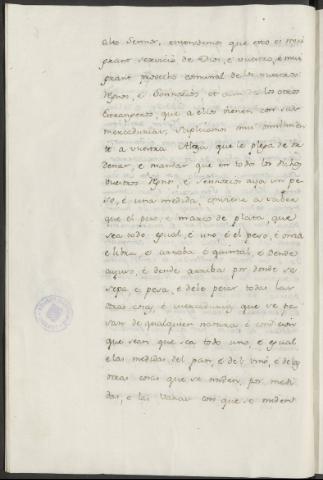 alto Sennor, entendemos que esto es muy
grant servicio de Dios, e vuestro, é muy
grant provecho comunal de los nuestros
Regnos, e Sennorios et aun de los otros
Estrangeros, que a ellos vienen con sus
mercadurias; Suplicamos muy omilmen
te a vuestra Alteza que le plega de or
denar, e mandar que en todo los dichos
vuestros Regnos, e Sennorios aya un pe
so, é una medida, conviene a saber
que el peso, e marco de plata, que
sea todo egual, é uno, é el peso, é onza
e libra, e arroba é quintal, é dende
ayuso, é dende arriba por donde se
pesa, e pesa, é debe pesar todas las
otras cosas, é mercadurias que se pe
san de qualquier natura é condicion
que sean que sea todo uno, é egual
e las medidas del pan, e del vino, e de las
otras cosas que se miden, por medi
das, e las varas con que se miden